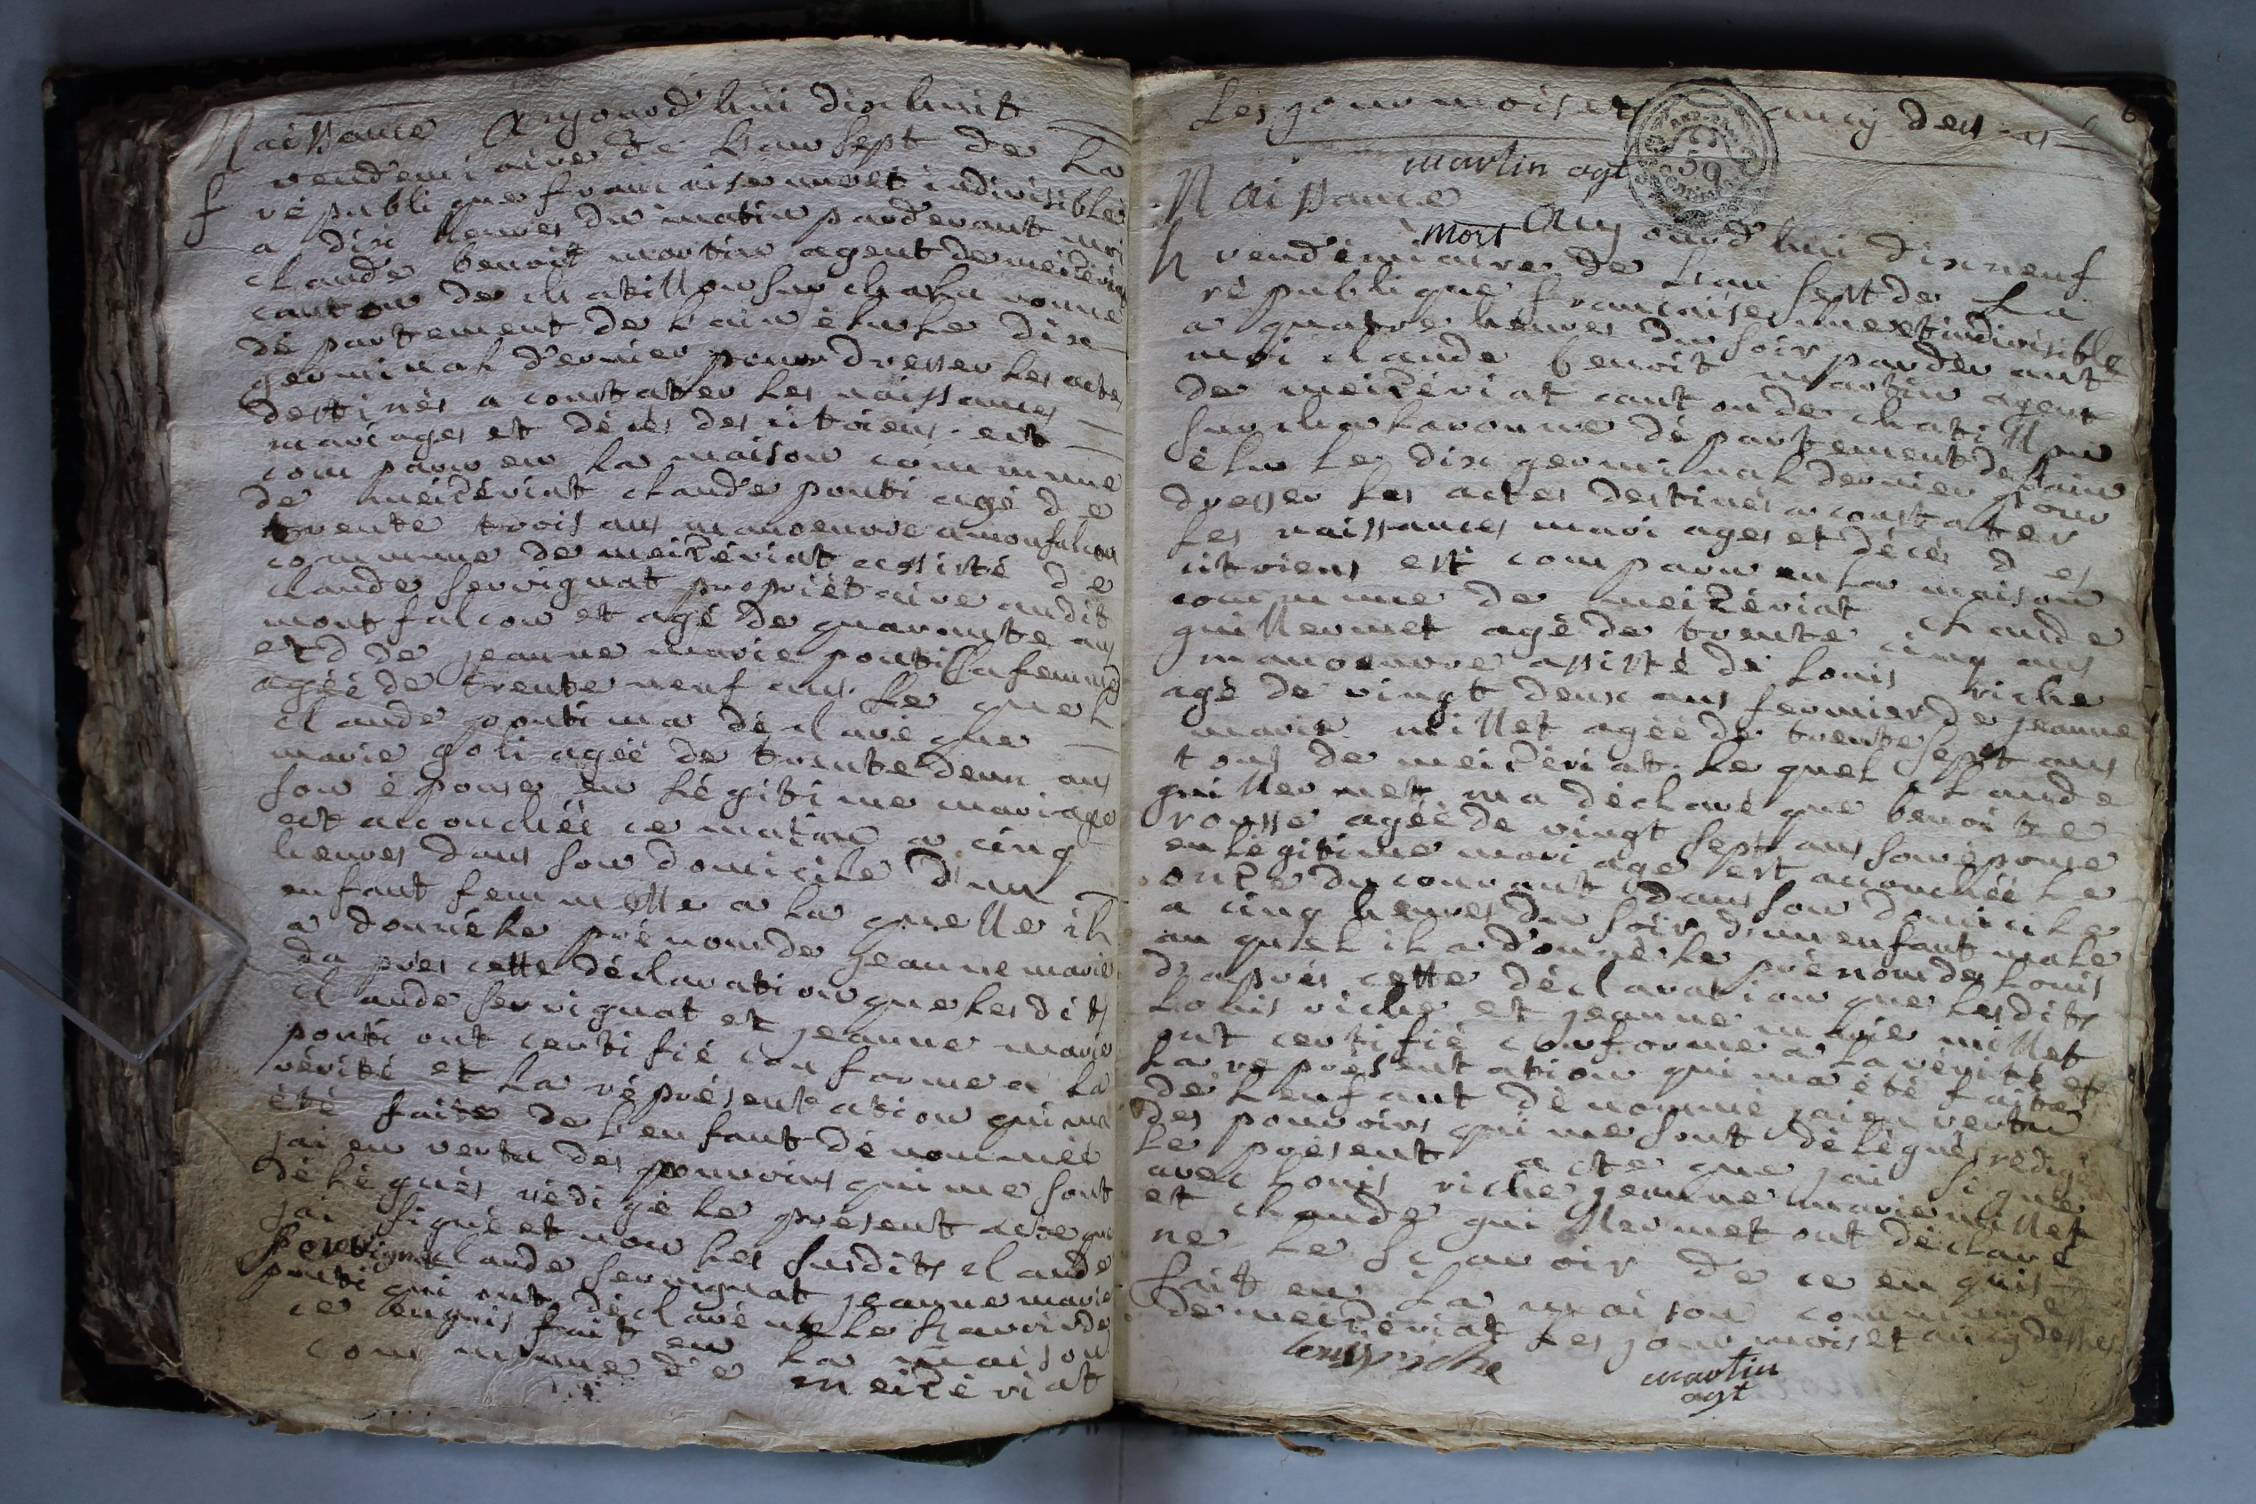 Naissance Aujourd'hui dixhuit
f vendemiaire de l'an sept de la
république francaise une et indivisible
a dix heures du matin pardevant moi
claude benoit martin agent de meizériat
canton de chatillon sur chalaronne
département de l'ain élu le dix
germinal dernier pour dresser les actes
destinés a constater les naissances
mariages et décès des citoiens est
comparu en la maison commune
de meizériat claude ponti agé de
trente trois ans manoeuvre a monfalcon
commune de meizériat assisté de
claude servignat propriétaire audit
montfalcon et agé de quarante ans
et d de jeanne marie ponti sa femme
agéé de trente neuf ans. le quel
claude ponti m'a déclaré que
marie poli agéé de trente deux ans
son épouse en légitime mariage
est accouchéé ce matin a cinq
heures dans son domicile d'un
enfant femmelle a la quelle il
a donné le prénom de jeanne marie
da pres cette déclaration que lesdits
claude servignat et jeanne marie
ponti ont certifié conforme a la
vérité et la représentation qui ma
été faite de l'enfant dénomméé
jai en vertu des pouvoirs qui me sont
délégués rédigé le présent acte que
jai signé et non les susdits claude
ponti claude servignat jeanne marie
ponti qui ont déclaré ne le scavoir de
ce enquis fait en la maison
commune de meizériat
Les jour mois et an cy dessus
martin agt
Naissance
mort Aujourd'hui dixneuf
h vendémiaire de l'an sept de la
république francaise une et indivisible
a quatre heures du soir pardevant
moi claude benoit martin agent
de meizériat canton de chatillon
sur chalaronne département de l'ain
élu le dix germinal dernier pour
dresser les actes destinés a constater
les naissances mariages et décès des
citoiens est comparu en la maison
commune de meizériat claude
guillermet agé de trente cinq ans
manoeuvre assisté de louis riche
agé de vingt deux ans fermier de jeanne
marie millet agéé de trente sept ans
tous de meizériat. le quel claude
guillermet m'a déclaré que benoite
rousse agéé de vingt sept ans son épouse
en légitime mariage est accouchéé le
onze du courant dans son domicile
a cinq heures du soir d'un enfant male
au quel il a donné le prénom de louis
d'après cette déclaration que lesdits
louis riche et jeanne marie millet
ont certifié conforme a la vérité et
la représentation qui ma été faite
de l'enfant dénommé jai en vertu
des pouvoirs qui me sont délégués rédigé
le présent acte que jai signé
avec louis riche jeanne marie millet
et claude guillermet ont déclaré
ne le scavoir de ce enquis
fait en la maison commune
de meizériat les jour mois et an cy dessus
louis riche
martin
agt